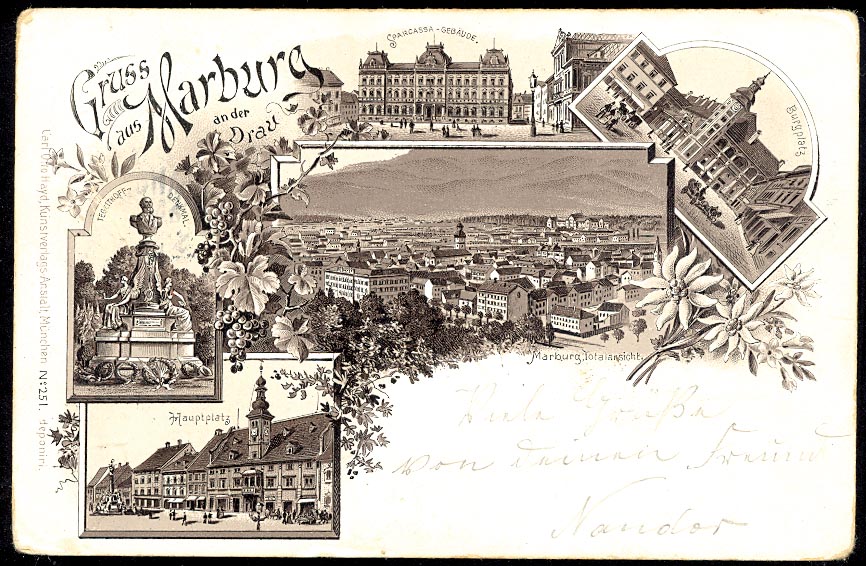 Gruss
aus
Marburg
an der
Drau
SPARCASSA-GEBÄUDE.
Burgplatz
TEGETTHOFF-DENKMAL
Marburg, Totalansicht.
Hauptplatz
Viele Grüße
von deinem Freund
Nandor
Carl Otto Hayd, Kunstverlags-Anstalt, München. No. 251. deponirt.